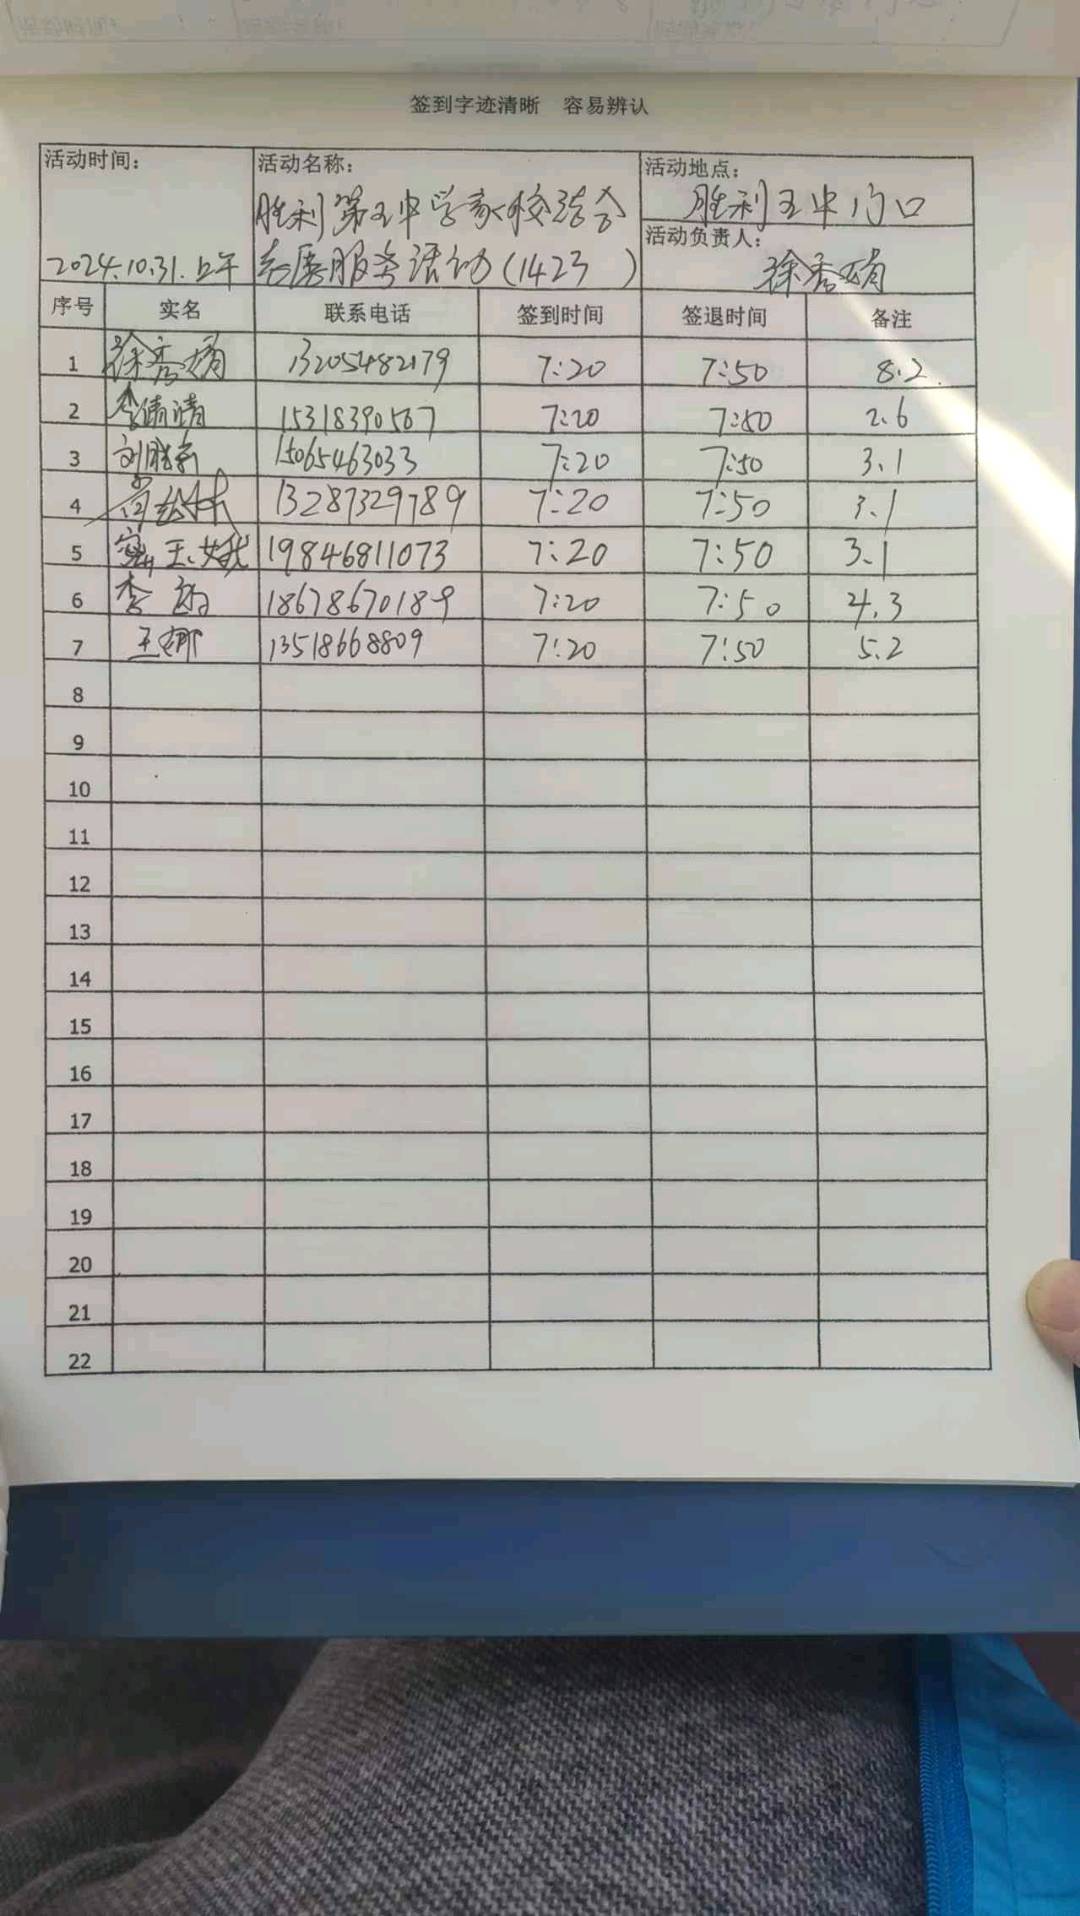 签到字迹清晰 容易辨认
活动时间: 活动名称: 活动地点:
胜利第五中学家校结合 胜利五中门口
活动负责人:
2024.10.31.上午 志愿服务活动(1423 ) 徐秀娟
序号 实名 联系电话 签到时间 签退时间 备注
1 徐秀娟 13205482179 7:20 7:50 8.2
2 李倩倩 15318390567 7:20 7:50 2.6
3 刘胜男 15065463033 7:20 7:50 3.1
4 13287329789 7:20 7:50 3.1
5 19846811073 7:20 7:50 3.1
6 李 18678670189 7:20 7:50 4.3
7 王娜 13518668809 7:20 7:50 5.2
8
9
10
11
12
13
14
15
16
17
18
19
20
21
22